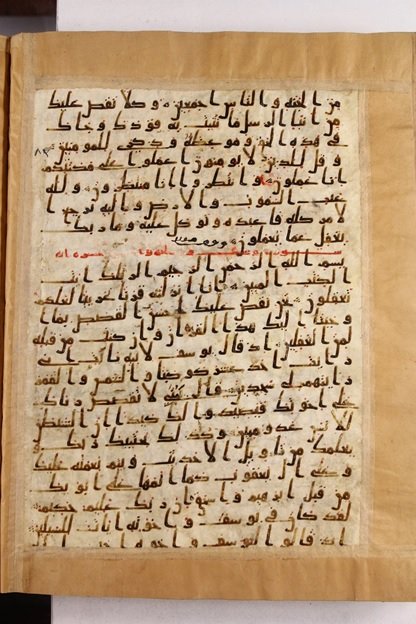 من الجنه والناس اجمعين وكلا نقص عليك
من انبا الرسل ما نثبت به فودك وجاك
في هذه الحق وموعظه وذكرى للمومنين
وقل للذين لا يومنون اعملوا على مكنتكم
انا عملون وانتظروا انا منتظرون ولله
غيب السموت والارض واليه يرجع ا
لامر كله فاعبده وتوكل عليه وما ربك
بغفل عما تعملون
بسم الله الرحمن الرحيم الر تلك ايت
الكتب المبين انا انزلنه قرنا عربيا لعلكم
تعقلون نحن نقص عليك احسن القصص بما ا
وحينا اليك هذا القران وان كنت من قبله
لمن الغفلين اذ قال يوسف لابيه يابت ا
ني رايت احد عشر كوكبا والشمس والقمر
رايتهم لي سجدين قال يبني لا تقصص رياك
على اخوتك فيكيدوا لك كيدا ان الشيطن
للانسن عدو مبين وكذلك يجتبيك ربك و
يعلمك من تاويل الاحديث ويتم نعمته عليك
وعلى ال يعقوب كما اتمها على ابويك
من قبل ابرهيم واسحق ان ربك عليم حكيم
لقد كان في يوسف واخوته ايت للسيلين
اذ قالوا ليوسف واخوه احب